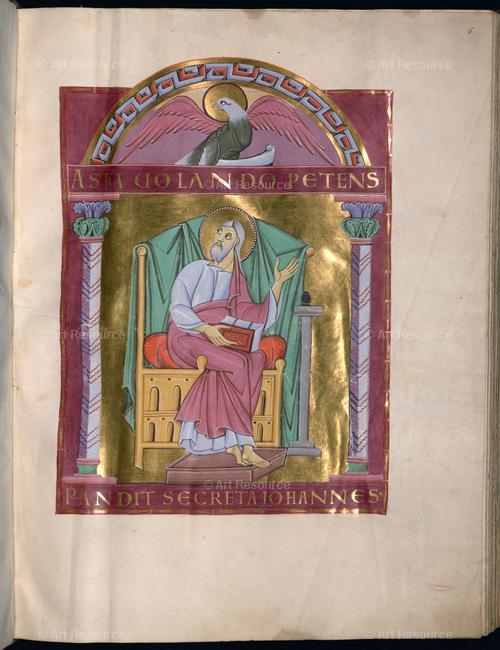 6
ASTRA UOLANDO PETENS
PANDIT SECRETA IOHANNES
© Art Resource
© Art Resource
© Art Resource
© Art Resource
© Art Resource
© Art Resource
© Art Resource
© Art Resource
© Art Resource